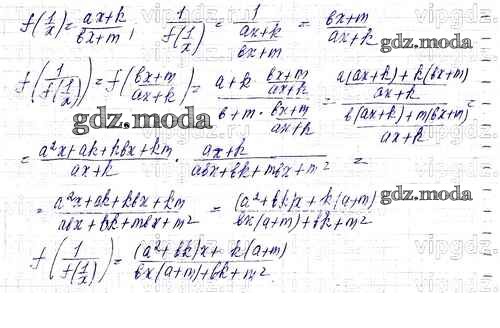 f(1/x) = (ax+k)/(bx+m); 1/f(1/x) = 1/((ax+k)/(bx+m)) = (bx+m)/(ax+k)
gdz.moda
f(1/f(1/x)) = f((bx+m)/(ax+k)) = (a+k (bx+m)/(ax+k))/(b+m·(bx+m)/(ax+k)) = ((a(ax+k)+k(bx+m))/(ax+k))/((b(ax+k)+m(bx+m))/(ax+k)) =
gdz.moda
= (a²x+ak+kbx+km)/(ax+k) · (ax+k)/(abx+bk+mbx+m²) =
= (a²x+ak+kbx+km)/(abx+bk+mbx+m²) = ((a²+bk)x+k(a+m))/(bx(a+m)+bk+m²)
gdz.moda
f(1/f(1/x)) = ((a²+bk)x+k(a+m))/(bx(a+m)+bk+m²)